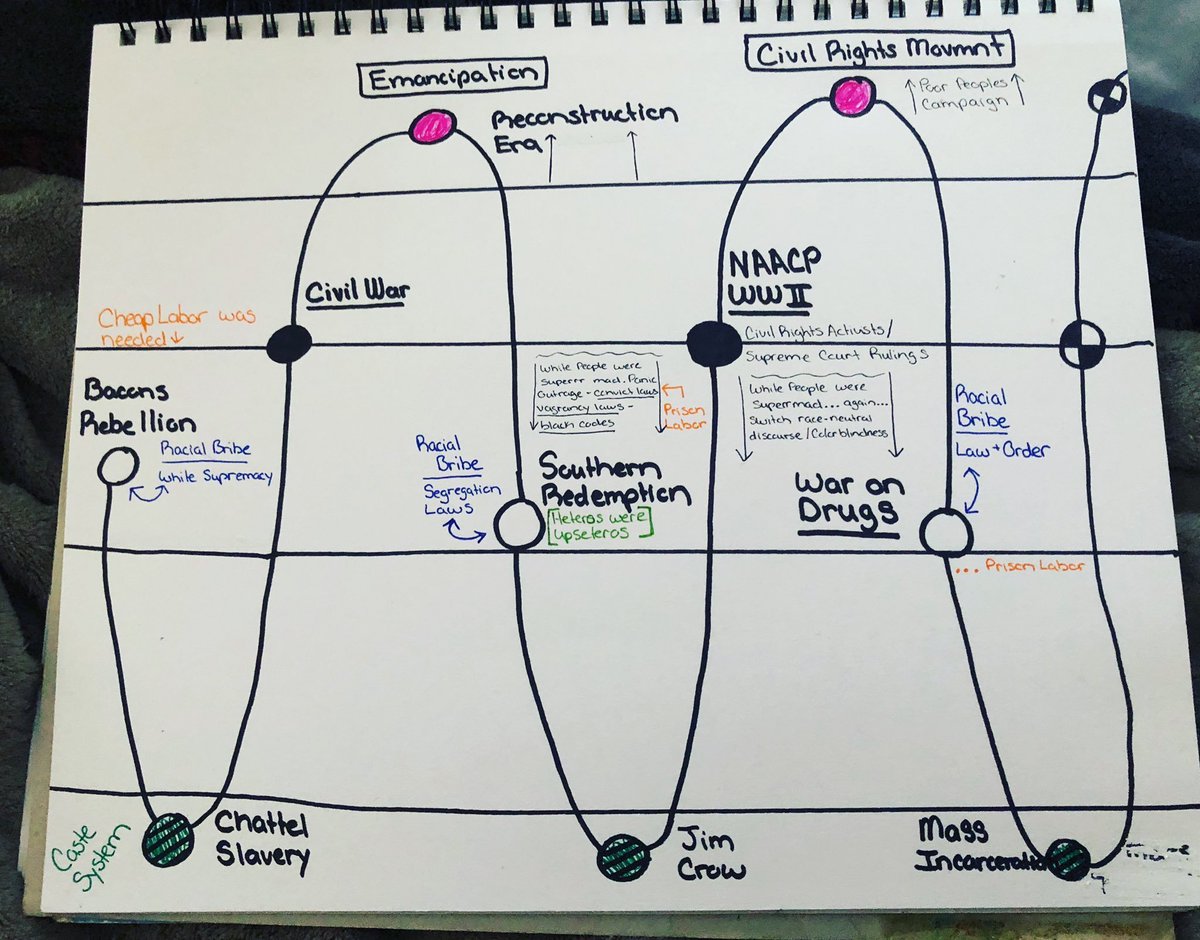 Emancipation
Civil Rights Movmnt
Poor Peoples
Campaign
Reconstruction
Era
Civil War
NAACP
WW II
Cheap Labor was
needed
Civil Rights Activists/
Supreme Court Rulings
Bacons
Rebellion
Racial Bribe
White Supremacy
While People were
Superrr mad. Panic
Outrage - convict laws
vagrancy laws -
black codes
Prison
Labor
While People were
Superrmad... again...
Switch race-neutral
discourse/Colorblindness
Racial
Bribe
Law + Order
Racial
Bribe
Segregation
Laws
Southern
Redemption
[Heteros were
upseteros]
War on
Drugs
... Prison Labor
Caste
System
Chattel
Slavery
Jim
Crow
Mass
Incarceration